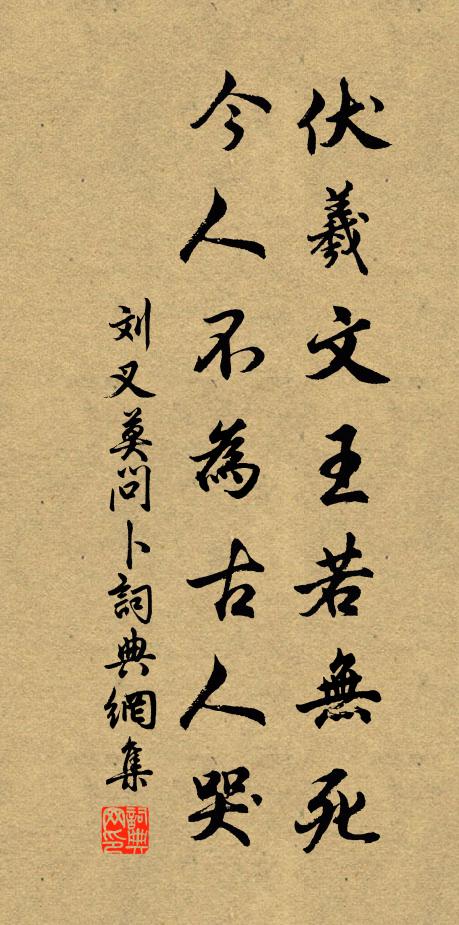 伏羲文王若無死
今人不為古人哭
刘叉莫問卜詞典網集
詞典网印